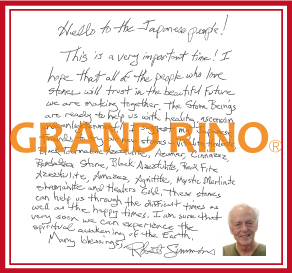 Hello to the Japanese people!
This is a very important time! I
hope that all of the people who love
stones will trust in the beautiful future
we are making together. The Stone Beings
are ready to help us with healing, ascension
GRANDRINO®
Stone, Black Azeztulite, Pink Fire
Azeztulite, Amazez, Mystic Merlinite
and Healers Gold. These stones
can help us through the difficult times as
well as the happy times. I am sure that
very soon we can experience the
spiritual awakening of the Earth.
Many blessings,
Robert Simmons